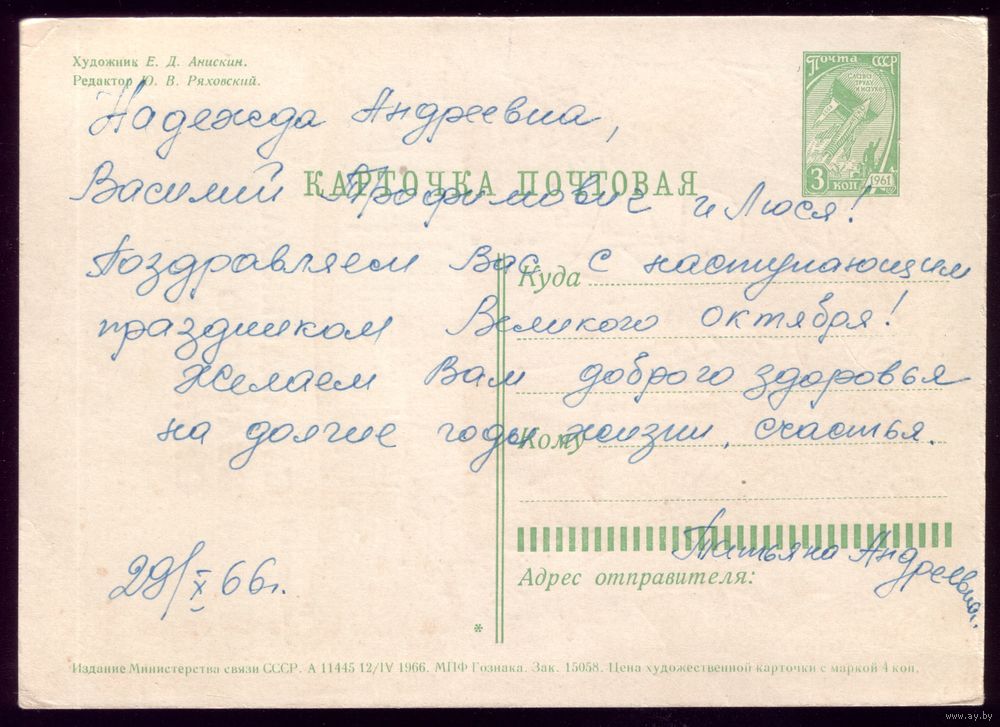 Художник Е. Д. Анискин.
Редактор Ю. В. Ряховский.
Почта СССР
СЛАВА
ТРУДУ
И НАУКЕ
3 коп
1961
Надежда Андреевна,
КАРТОЧКА ПОЧТОВАЯ
Василий Трофимович и Люся!
Поздравляем Вас с наступающим
Куда
праздником Великого Октября!
Желаем Вам доброго здоровья
на долгие годы жизни, счастья.
Кому
Татьяна Андреевна.
Адрес отправителя:
29/X 66г.
*
Издание Министерства связи СССР. А 11445 12/IV 1966. МПФ Гознака. Зак. 15058. Цена художественной карточки с маркой 4 коп.
www.ay.by